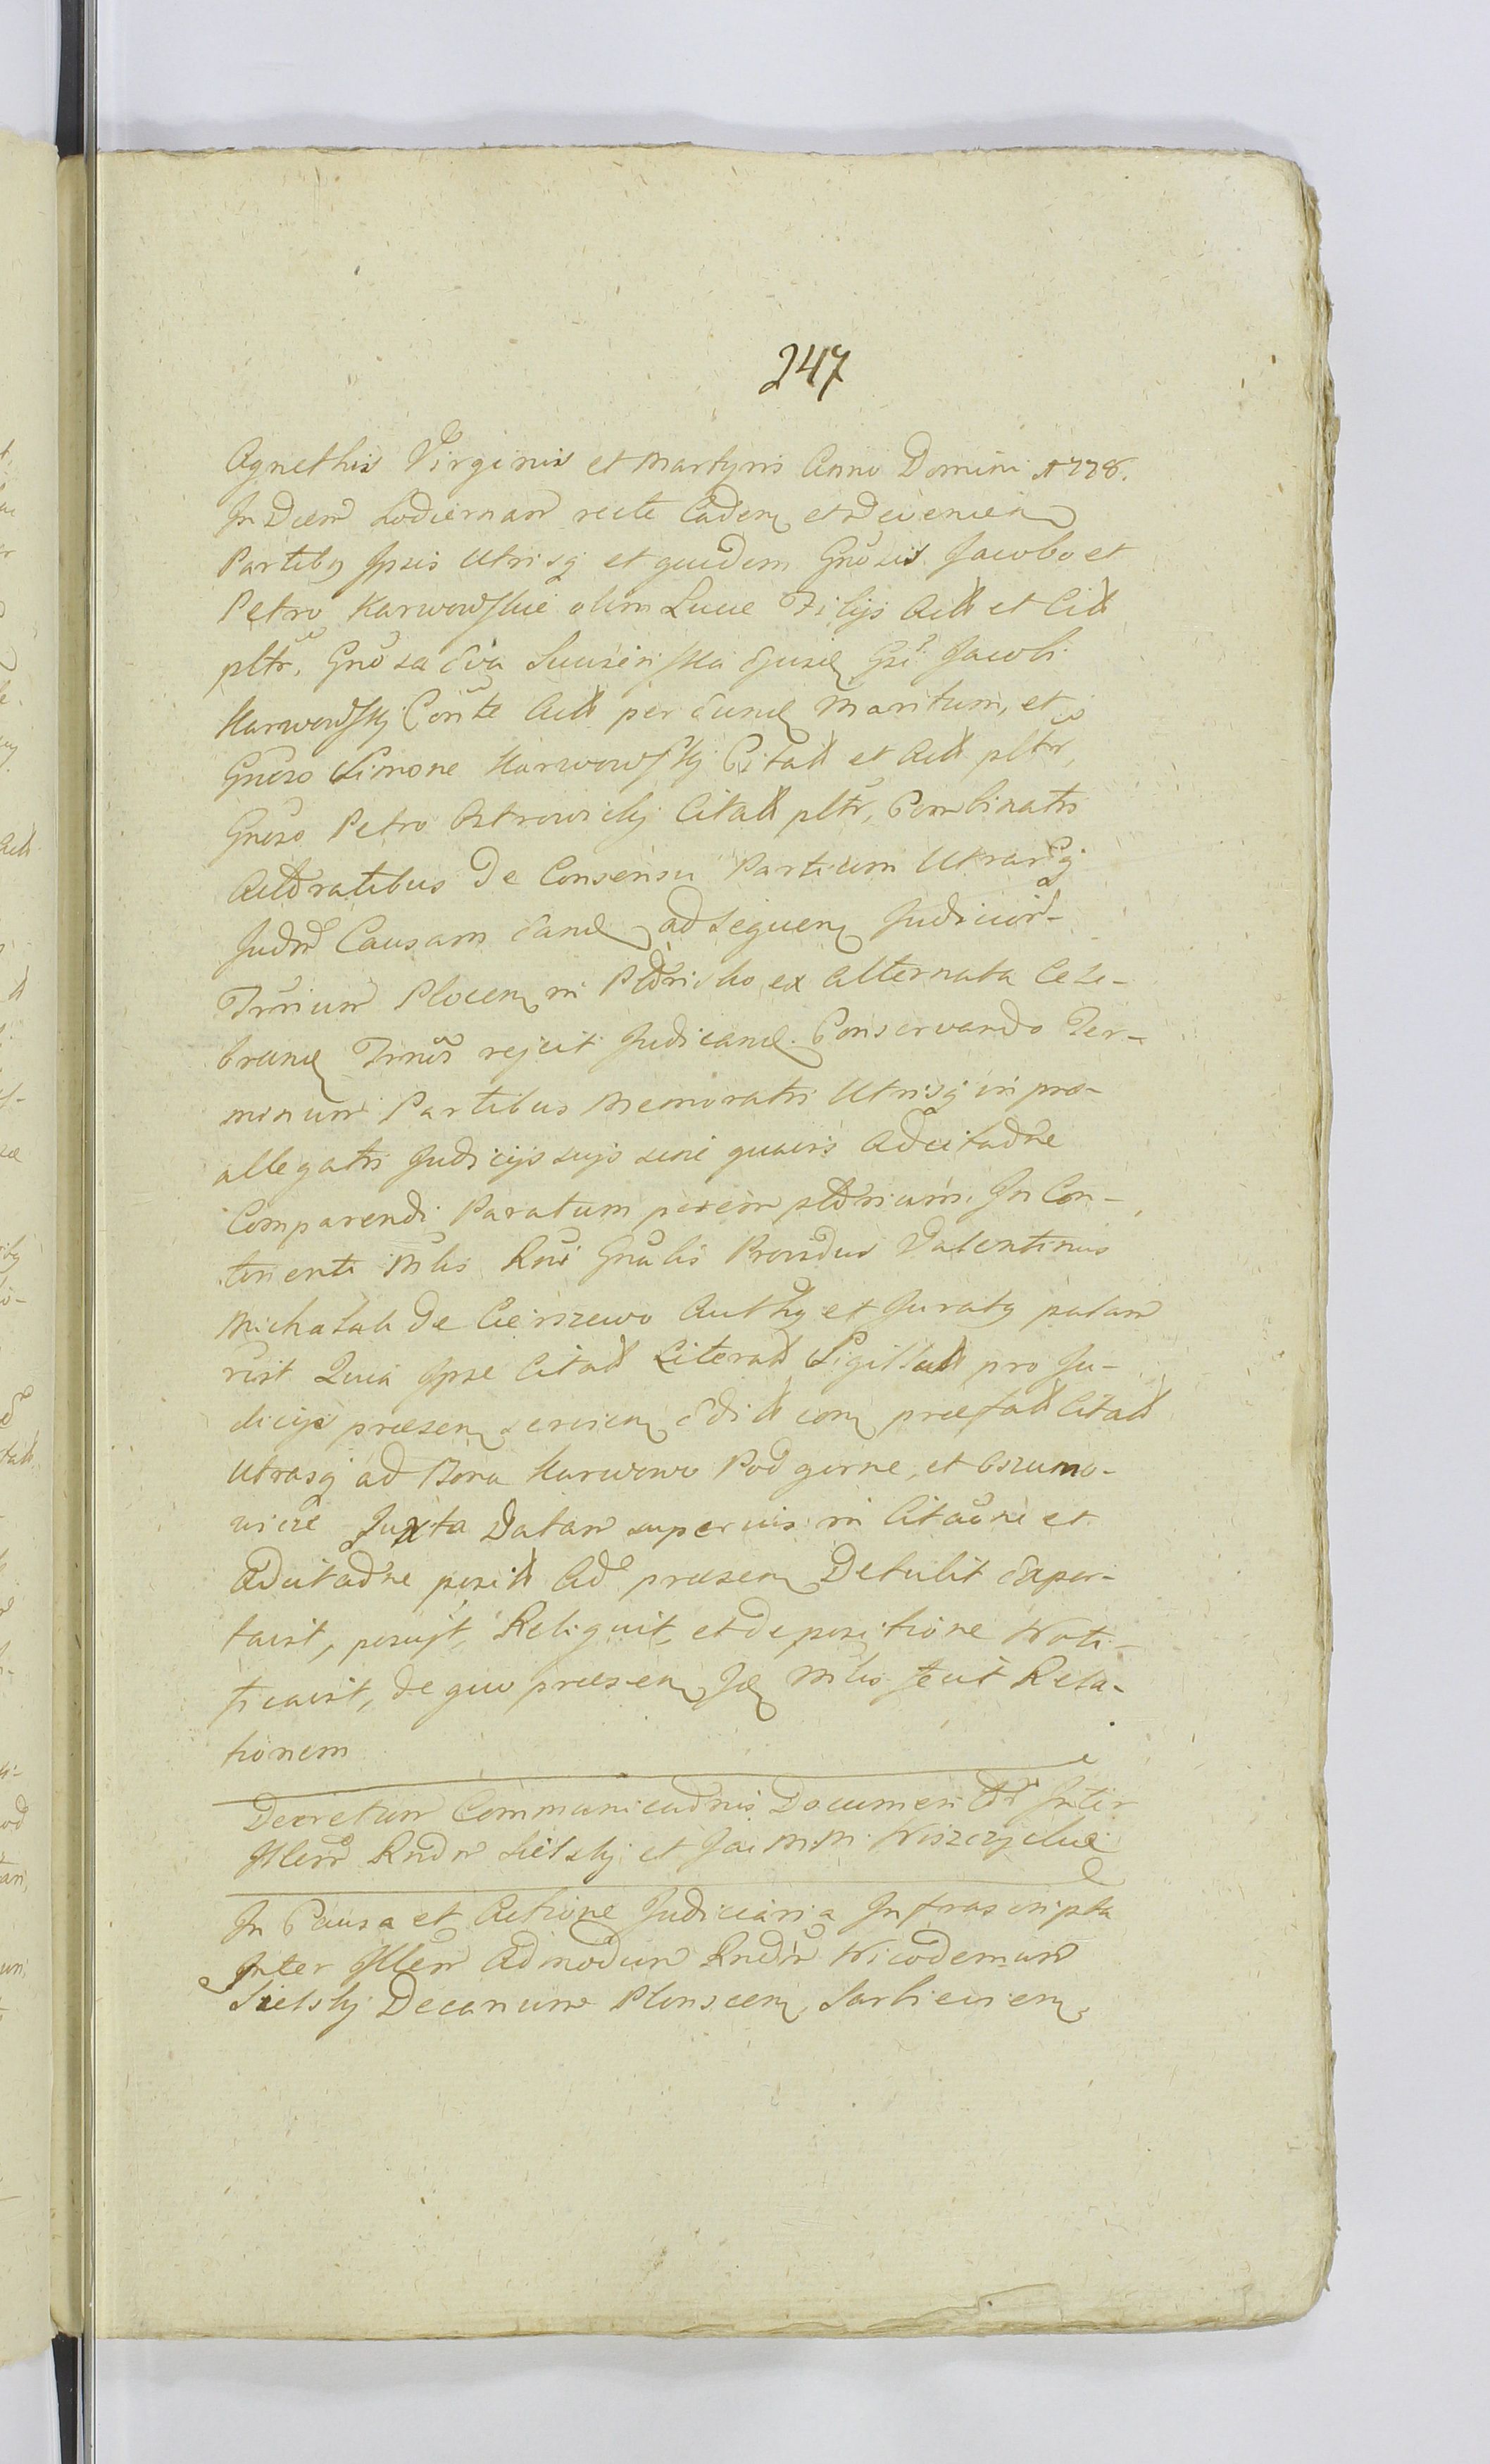 247
Agnethis Virginis et Martyris Anno Domini 1778.
In Diem hodiernam recte Caden et devenien
Partibq Ipsis Utrisq et quidem Gnosis Jacobo et
Petro Karwowskie olim Lucae Filijs Act et Cit
pltr, Gnosa Eva Eiusd Gsi Jacobi
Karwowskij Conte Act per Eund Maritum, et
Gnoso Simone Karwowskij Citatt et Act pltr,
Gnoso Petro Ostrowskij Citatt pltr, Combinatis
Actoratibus De Consensu Partium Utrarq
Judm Causam eand ad Sequen Judicior-
Trrium Plocen in Pldrisko ex Alternata Cele-
brand Trmis rejcit Judicand. Conservando Ter-
minum Partibus Memoratis Utrisq in prae-
allegatis Judicijs sujs sine quavis Adcitadne
Comparendi Paratum peremptorium. In Con-
tinenti Mlis Rni Gnalis Providus Valentinus
Michalak de Cieriszewo Authq et Juratq palam
rist Quia Ipse Citatt Literatt Sigillatt pro Ju-
dicijs praesen servien Editt com praefatt Citatt
Utrasq ad Bona Karwowo Podgorne, et
Juxta Datam superius in Citaoni et
Adcitadne posit Ad praesen Detulit Expor-
tavit, posujt, Reliquit, et de positione Noti-
ficavit, de quo praesen Id Mlis fecit Rela-
tionem
Decretum Communicadnis Documentor Inter
Illem Rndm Sielskj et
In Causa et Actione Judiciaria Infrascripta
Inter Illem Admodum Rndm Nicodemum
Sielskj Decanum Plonscen, Sarbievien,